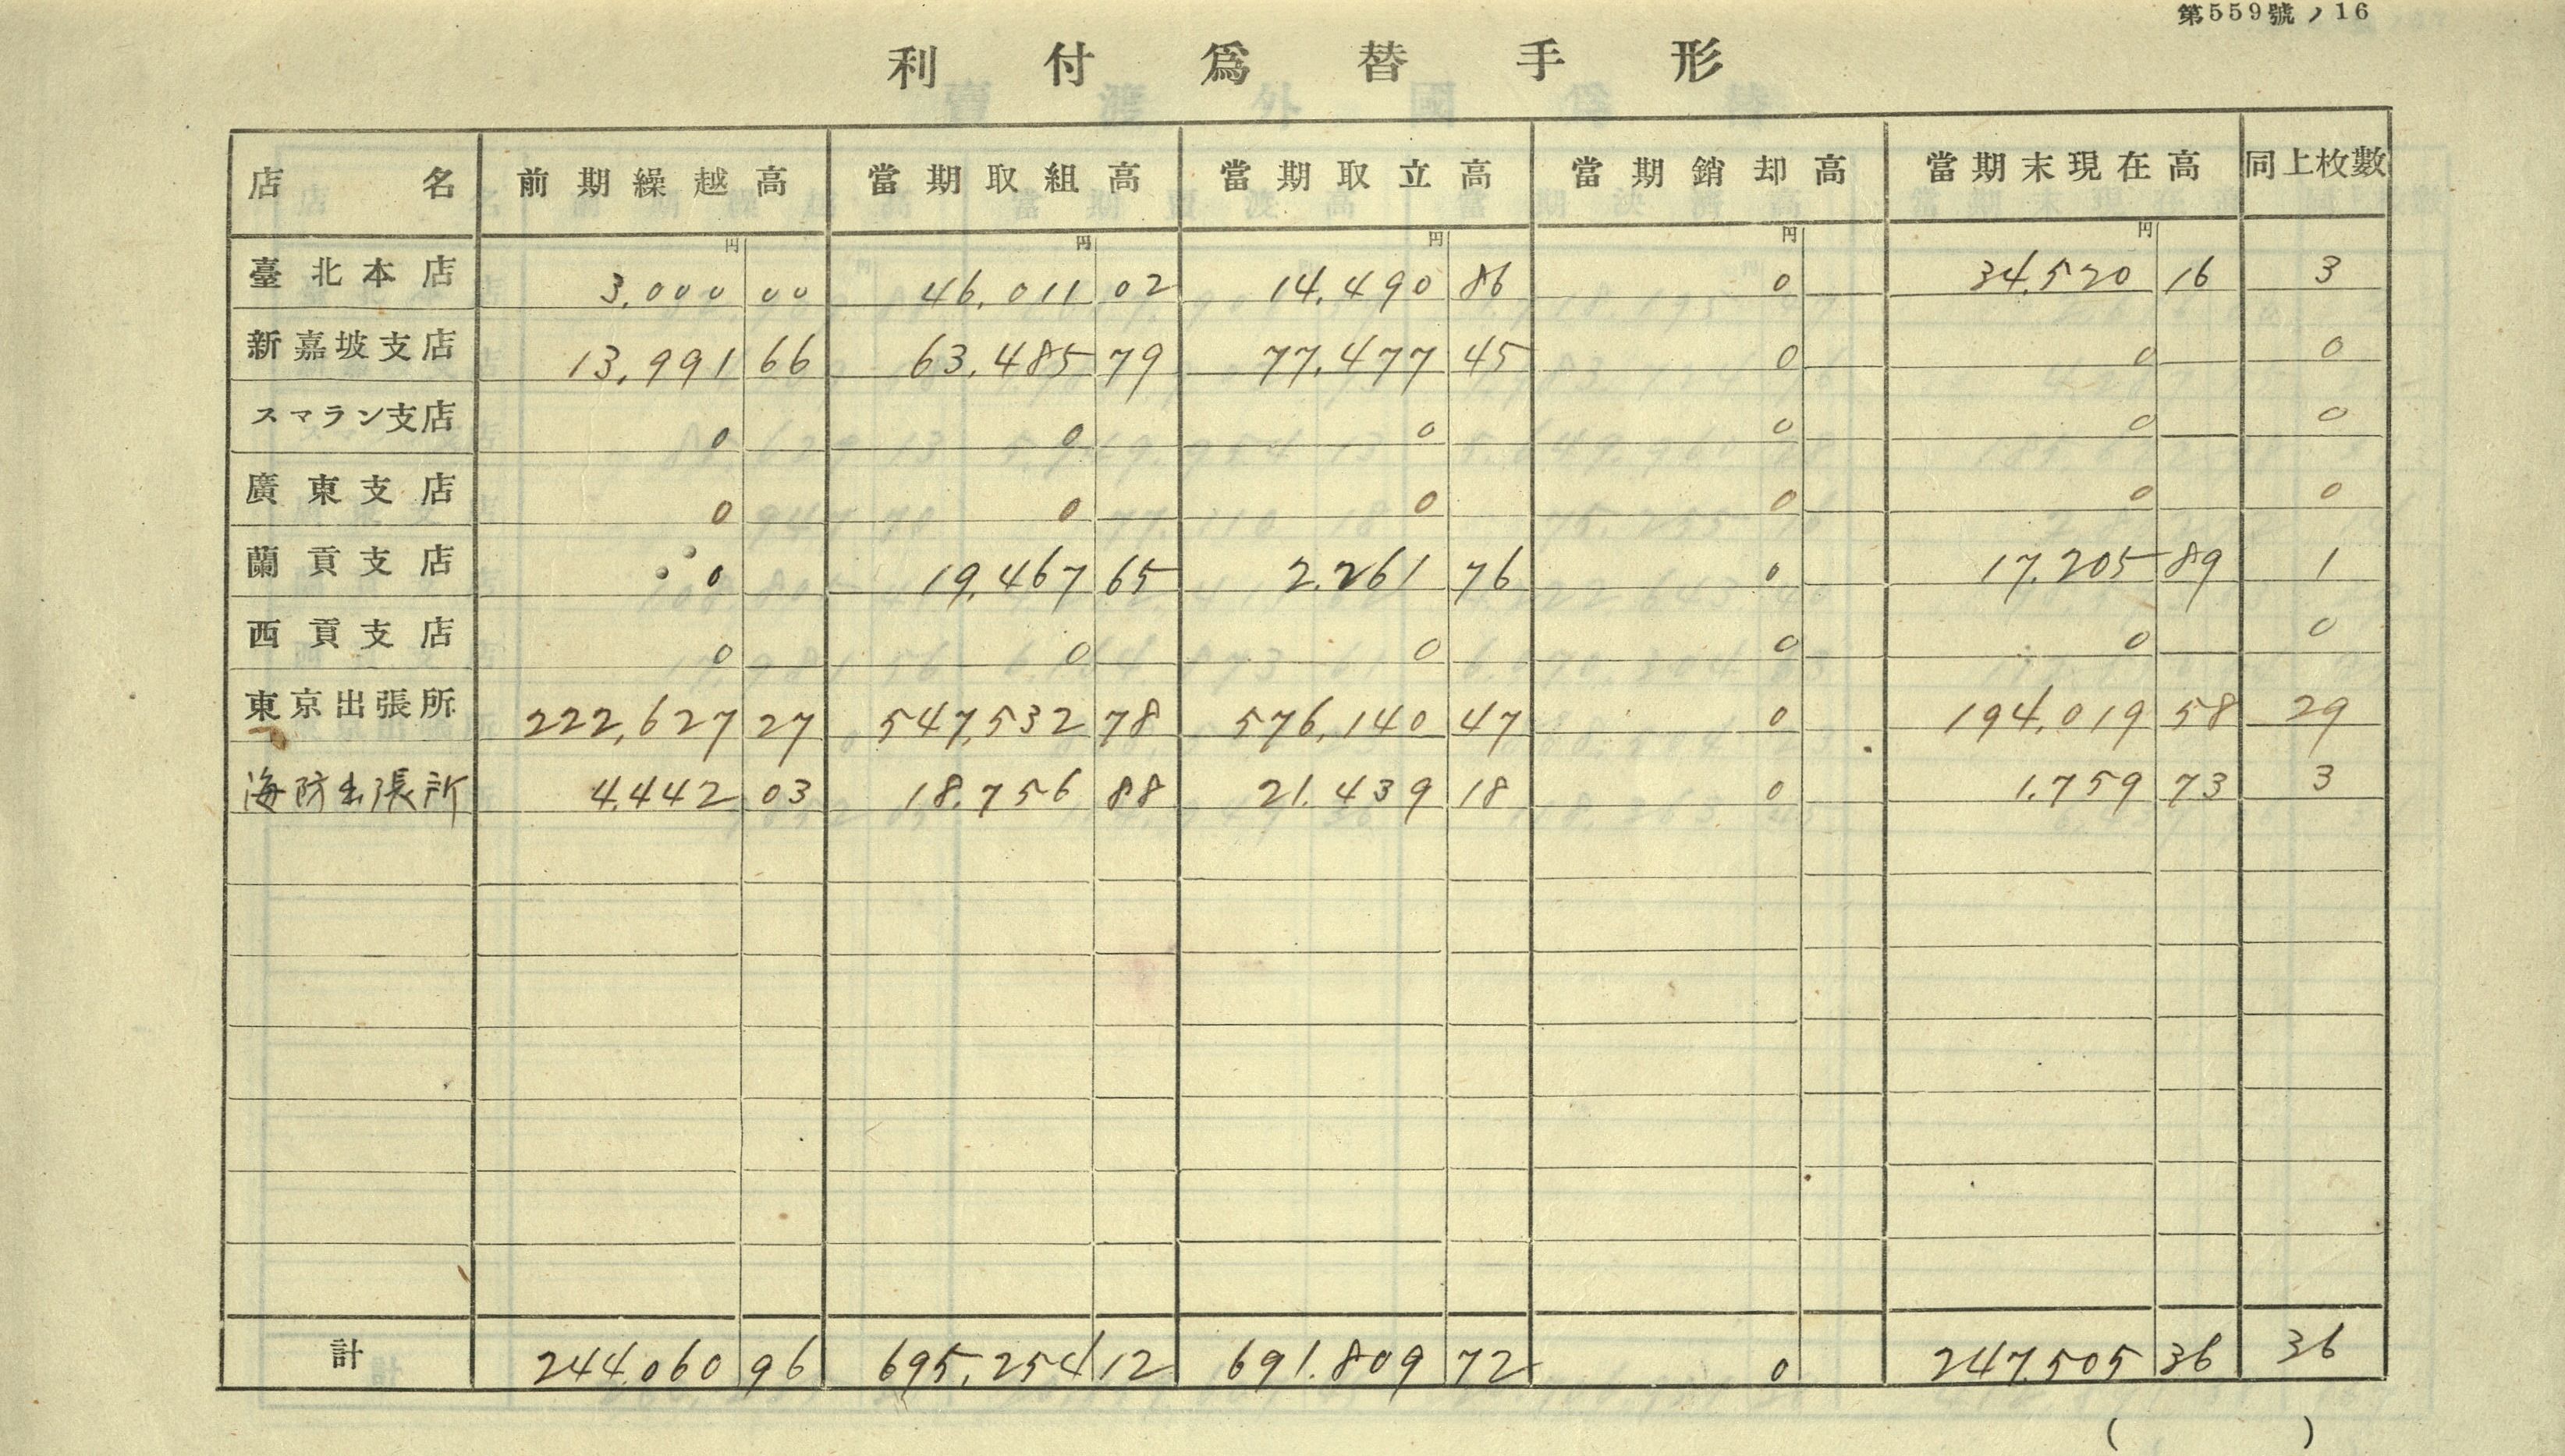 第559號ノ16
利付爲替手形
店名 前期繰越高 當期取組高 當期取立高 當期銷却高 當期末現在高 同上枚數
円 円 円 円 円
臺北本店 3,000 00 46,011 02 14,490 86 0 34,520 16 3
新嘉坡支店 13,991 66 63,485 79 77,477 45 0 0 0
スマラン支店 0 0 0 0 0 0
廣東支店 0 0 0 0 0 0
蘭貢支店 0 19,467 65 2,261 76 0 17,205 89 1
西貢支店 0 0 0 0 0 0
東京出張所 222,627 27 547,532 78 576,140 47 0 194,019 58 29
海防出張所 4,442 03 18,756 88 21,439 18 0 1,759 73 3
計 244,060 96 695,254 12 691,809 72 0 247,505 36 36
( )